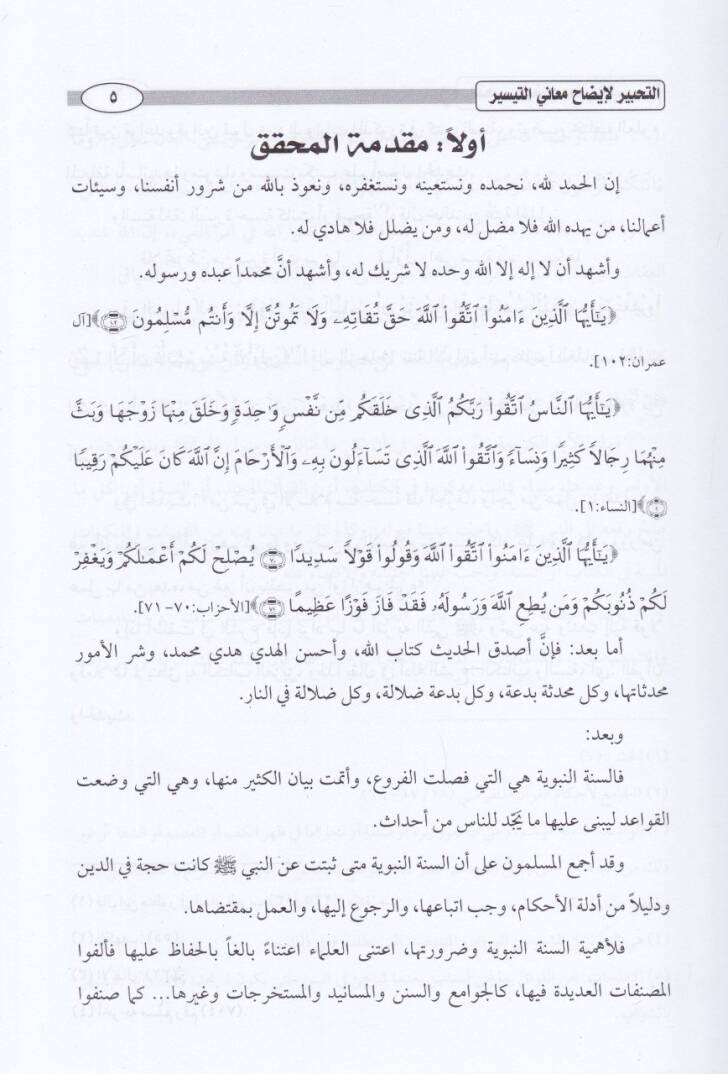 التحبير لإيضاح معاني التيسير
٥
أولاً: مقدمة المحقق
إن الحمد لله، نحمده ونستعينه ونستغفره، ونعوذ بالله من شرور أنفسنا، وسيئات
أعمالنا، من يهده الله فلا مضل له، ومن يضلل فلا هادي له.
وأشهد أن لا إله إلا الله وحده لا شريك له، وأشهد أنَّ محمداً عبده ورسوله.
﴿يَـٰٓأَيُّهَا ٱلَّذِينَ ءَامَنُوا۟ ٱتَّقُوا۟ ٱللَّهَ حَقَّ تُقَاتِهِۦ وَلَا تَمُوتُنَّ إِلَّا وَأَنتُم مُّسْلِمُونَ ۝١٠٢﴾[آل
عمران:١٠٢].
﴿يَـٰٓأَيُّهَا ٱلنَّاسُ ٱتَّقُوا۟ رَبَّكُمُ ٱلَّذِى خَلَقَكُم مِّن نَّفْسٍ وَٰحِدَةٍ وَخَلَقَ مِنْهَا زَوْجَهَا وَبَثَّ
مِنْهُمَا رِجَالًا كَثِيرًا وَنِسَآءً وَٱتَّقُوا۟ ٱللَّهَ ٱلَّذِى تَسَآءَلُونَ بِهِۦ وَٱلْأَرْحَامَ إِنَّ ٱللَّهَ كَانَ عَلَيْكُمْ رَقِيبًا
۝١﴾[النساء:١].
﴿يَـٰٓأَيُّهَا ٱلَّذِينَ ءَامَنُوا۟ ٱتَّقُوا۟ ٱللَّهَ وَقُولُوا۟ قَوْلًا سَدِيدًا ۝٧٠ يُصْلِحْ لَكُمْ أَعْمَـٰلَكُمْ وَيَغْفِرْ
لَكُمْ ذُنُوبَكُمْ وَمَن يُطِعِ ٱللَّهَ وَرَسُولَهُۥ فَقَدْ فَازَ فَوْزًا عَظِيمًا ۝٧١﴾[الأحزاب:٧٠-٧١].
أما بعد: فإنَّ أصدق الحديث كتاب الله، وأحسن الهدي هدي محمد، وشر الأمور
محدثاتها، وكل محدثة بدعة، وكل بدعة ضلالة، وكل ضلالة في النار.
وبعد:
فالسنة النبوية هي التي فصلت الفروع، وأتمت بيان الكثير منها، وهي التي وضعت
القواعد ليبنى عليها ما يَجِّد للناس من أحداث.
وقد أجمع المسلمون على أن السنة النبوية متى ثبتت عن النبي ﷺ كانت حجة في الدين
ودليلاً من أدلة الأحكام، وجب اتباعها، والرجوع إليها، والعمل بمقتضاها.
فلأهمية السنة النبوية وضرورتها، اعتنى العلماء اعتناءً بالغاً بالحفاظ عليها فألفوا
المصنفات العديدة فيها، كالجوامع والسنن والمسانيد والمستخرجات وغيرها... كما صنفوا